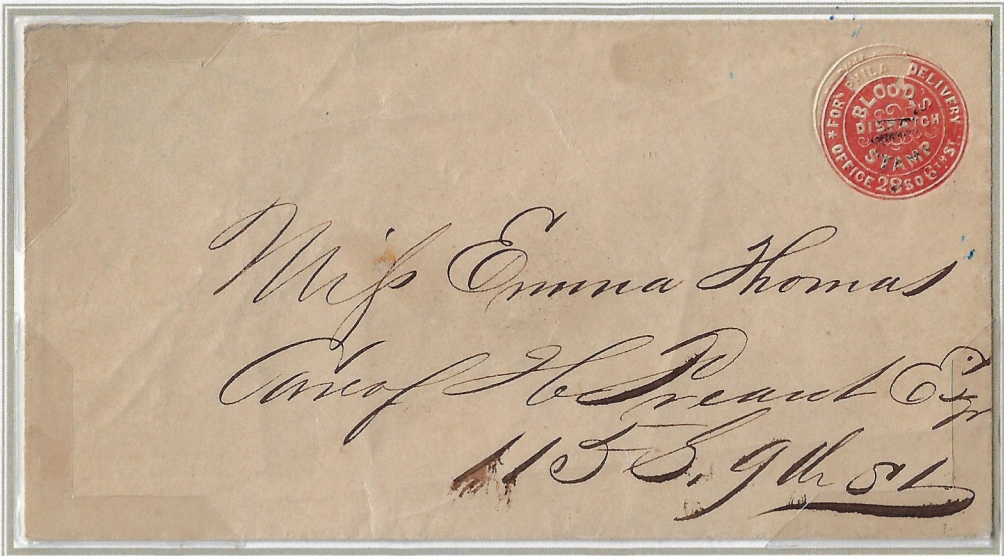 FOR PHILA DELIVERY
BLOOD'S
DISPATCH
STAMP
OFFICE 28 SO 6TH St.
Miss Emma Thomas
Care of H C Esqr
115 S. 9th St